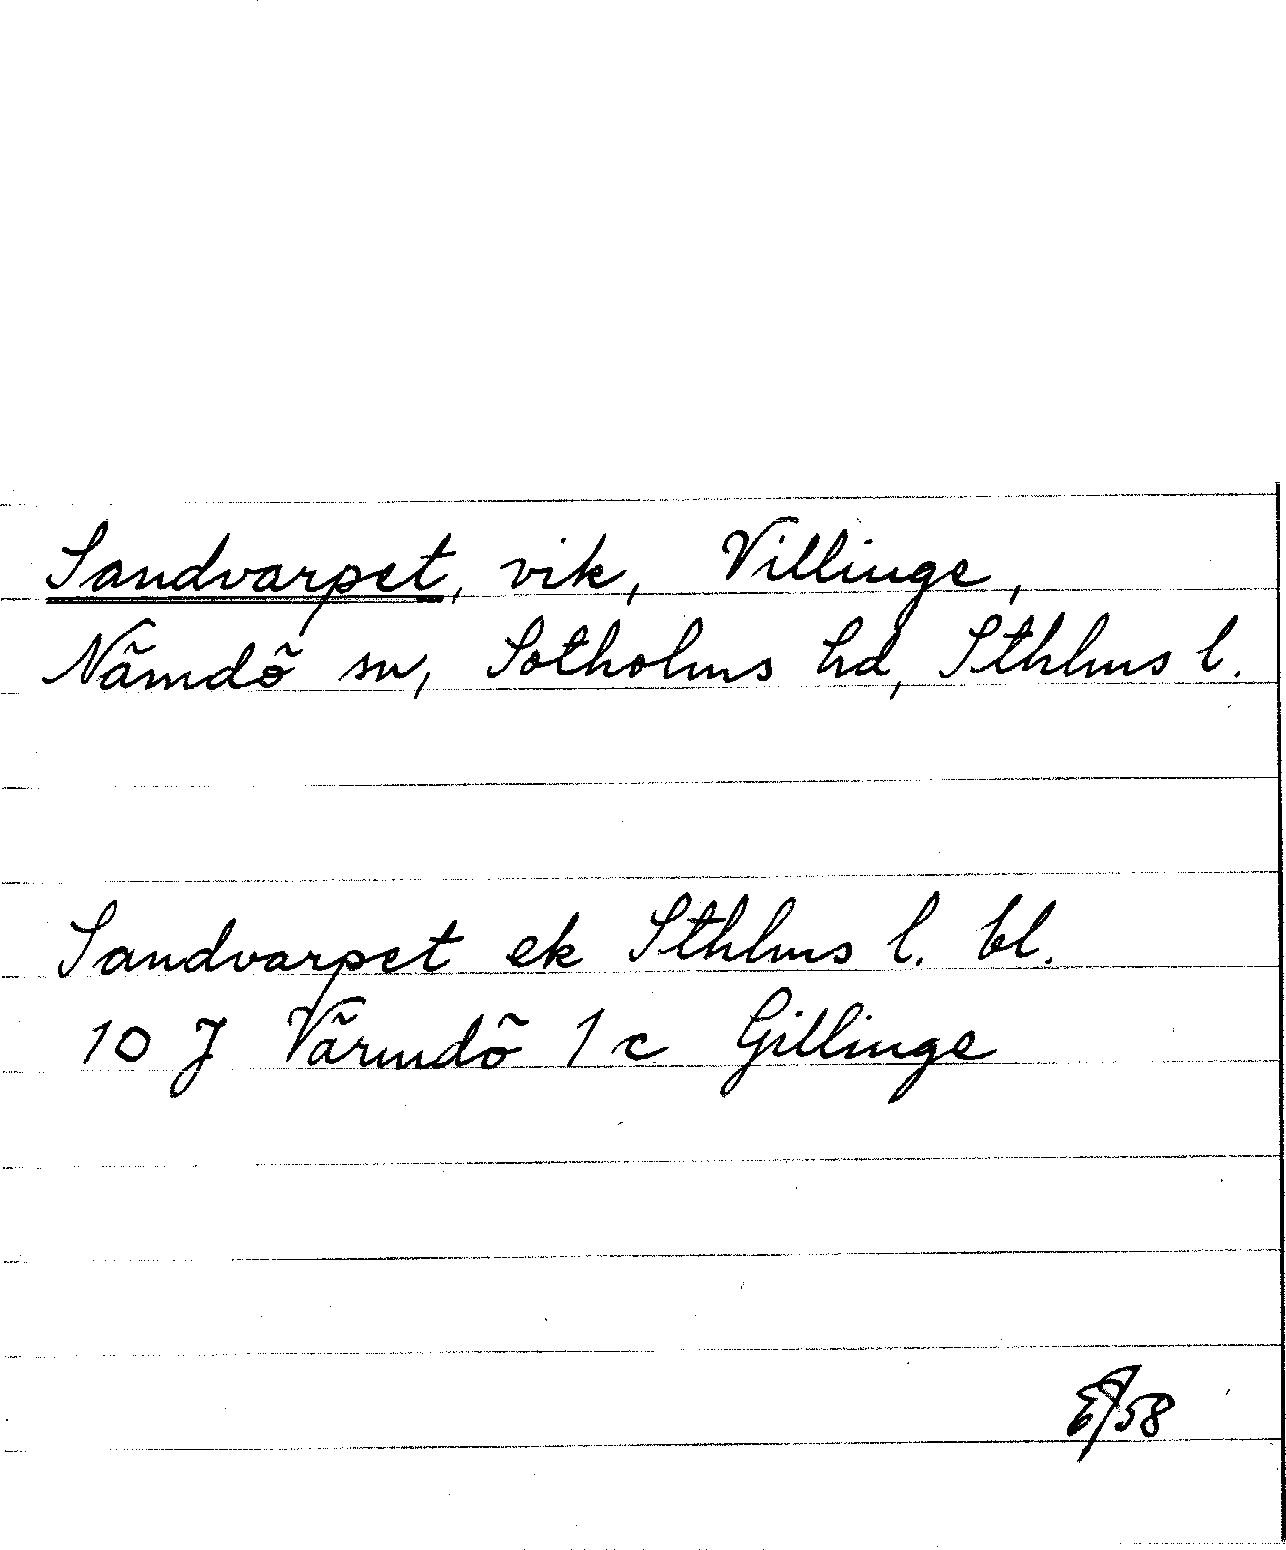 Sandvarpet, vik, Villinge,
Nämdö sn, Sotholms hd, Sthlms l.
Sandvarpet ek Sthlms l. bl.
10 J Värmdö 1 c Gillinge
58